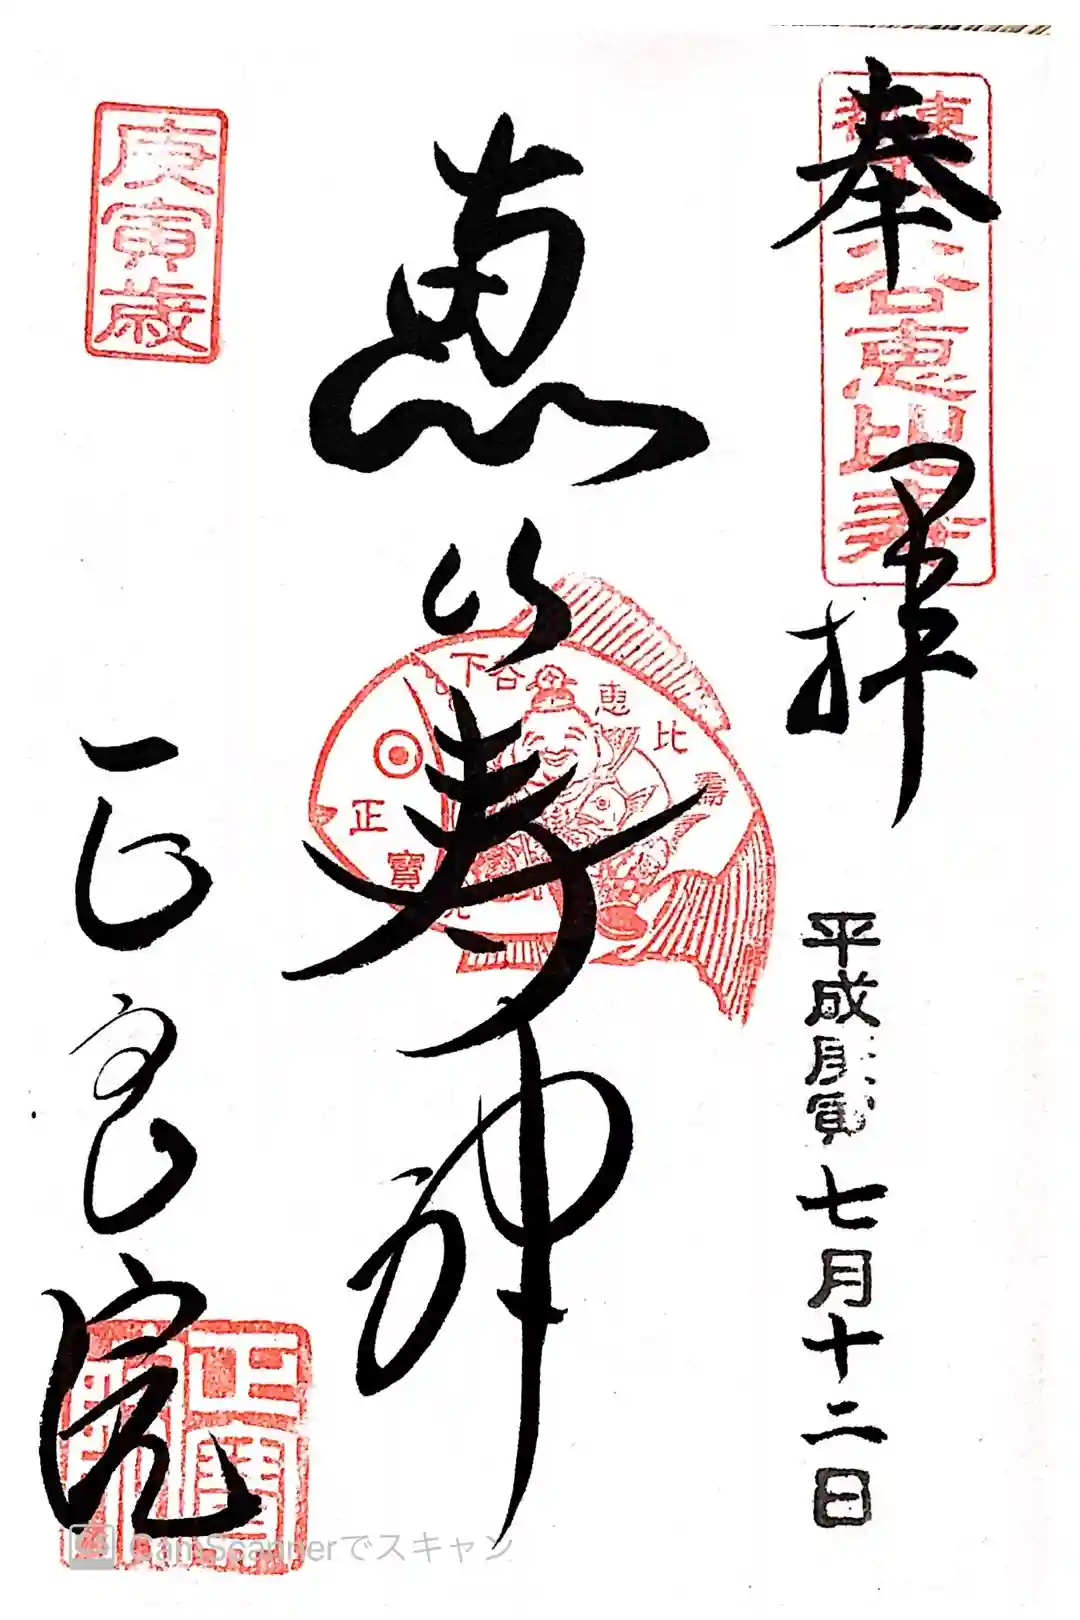 奉拝
下谷恵比寿
平成庚寅七月十二日
恵比寿神
下谷恵比壽
正寶院
庚寅歳
正宝院
正寶
CamScannerでスキャン